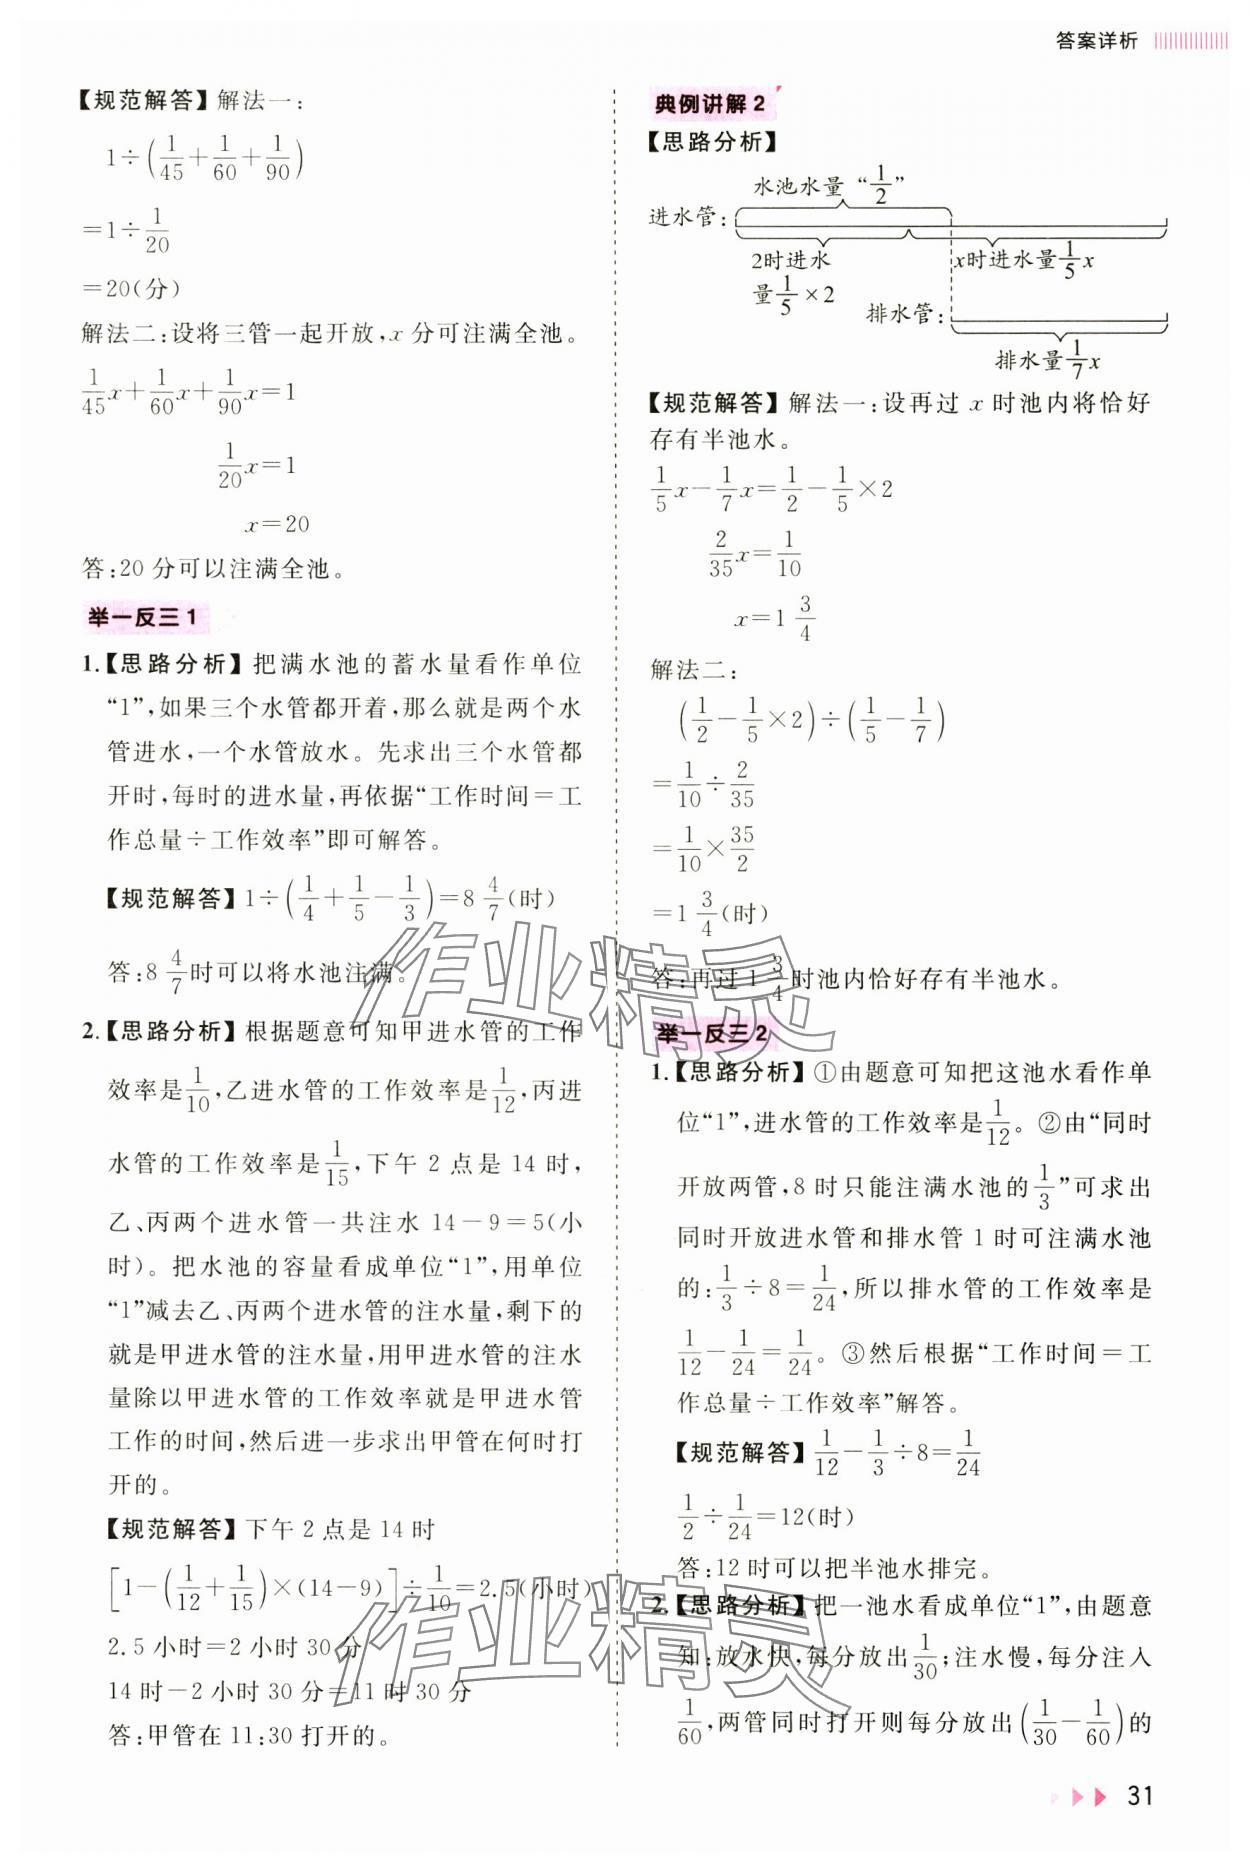 答案详析
【规范解答】解法一:
1÷(1/45+1/60+1/90)
=1÷1/20
=20(分)
解法二:设将三管一起开放,x 分可注满全池。
1/45x+1/60x+1/90x=1
1/20x=1
x=20
答:20 分可以注满全池。
举一反三 1
1.【思路分析】把满水池的蓄水量看作单位
“1”,如果三个水管都开着,那么就是两个水
管进水,一个水管放水。先求出三个水管都
开时,每时的进水量,再依据“工作时间=工
作总量÷工作效率”即可解答。
【规范解答】1÷(1/4+1/5-1/3)=8 4/7(时)
答:8 4/7时可以将水池注满。
2.【思路分析】根据题意可知甲进水管的工作
效率是1/10,乙进水管的工作效率是1/12,丙进
水管的工作效率是1/15,下午 2 点是 14 时,
乙、丙两个进水管一共注水 14-9=5(小
时)。把水池的容量看成单位“1”,用单位
“1”减去乙、丙两个进水管的注水量,剩下的
就是甲进水管的注水量,用甲进水管的注水
量除以甲进水管的工作效率就是甲进水管
工作的时间,然后进一步求出甲管在何时打
开的。
【规范解答】下午 2 点是 14 时
[1-(1/12+1/15)×(14-9)]÷1/10=2.5(小时)
2.5 小时=2 小时 30 分
14 时-2 小时 30 分=11 时 30 分
答:甲管在 11:30 打开的。
典例讲解 2
【思路分析】
水池水量“1/2”
进水管:
2时进水
量1/5×2
x时进水量1/5x
排水管:
排水量1/7x
【规范解答】解法一:设再过 x 时池内将恰好
存有半池水。
1/5x-1/7x=1/2-1/5×2
2/35x=1/10
x=1 3/4
解法二:
(1/2-1/5×2)÷(1/5-1/7)
=1/10÷2/35
=1/10×35/2
=1 3/4(时)
答:再过 1 3/4时池内恰好存有半池水。
举一反三 2
1.【思路分析】①由题意可知把这池水看作单
位“1”,进水管的工作效率是1/12。②由“同时
开放两管,8 时只能注满水池的1/3”可求出
同时开放进水管和排水管 1 时可注满水池
的:1/3÷8=1/24,所以排水管的工作效率是
1/12-1/24=1/24。③然后根据“工作时间=工
作总量÷工作效率”解答。
【规范解答】1/12-1/3÷8=1/24
1/2÷1/24=12(时)
答:12 时可以把半池水排完。
2.【思路分析】把一池水看成单位“1”,由题意
知:放水快,每分放出1/30;注水慢,每分注入
1/60,两管同时打开则每分放出(1/30-1/60)的
31
作业精灵
作业精灵